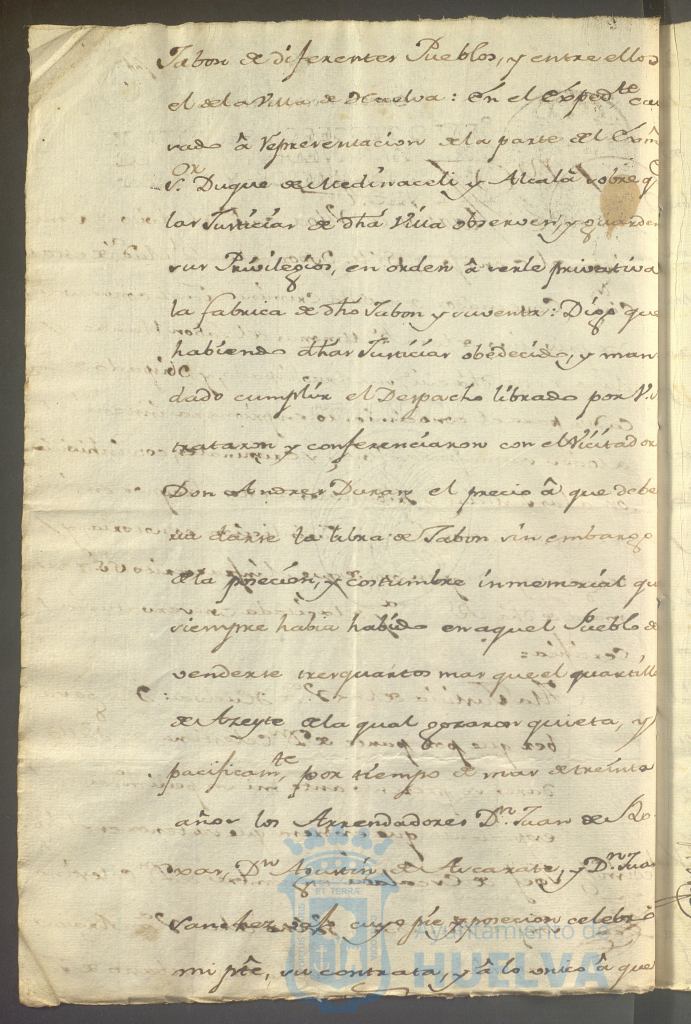 Jabon de diferentes Pueblos, y entre ellos
el de la Villa de Huelva: en el Expedte cau
sado â representacion de la parte del Exmo
Sor. Duque de Medinaceli y Alcalâ sobre q
las Justicias de dha Villa observen y guarden
sus Privilegios, en orden â serle privativa
la fabrica de dho Jabon y su venta: Digo que
habiendo dhas Justicias obedecido, y man
dado cumplir el Despacho librado por V.
trataron y conferenciaron con el Visitador
Don Andres Duran el precio â que debe
ria darse la libra de Jabon sin embargo
de la posecion, y costumbre inmemorial que
siempre habia habido en aquel Pueblo de
venderse tres quartos mas que el quartillo
de Azeyte de la qual gozaron quieta, y
pacificamte, por tiempo de mas de treinta
años los Arrendadores Dn. Juan de Ro
xas, Dn Agustin de Alcarate, y Dn. Jua
Sanchez cuyo pie y posecion celebrò
mi pte, su contrata, y â lo unico â que
ET TERRÆ
Ayuntamiento de
HUELVA